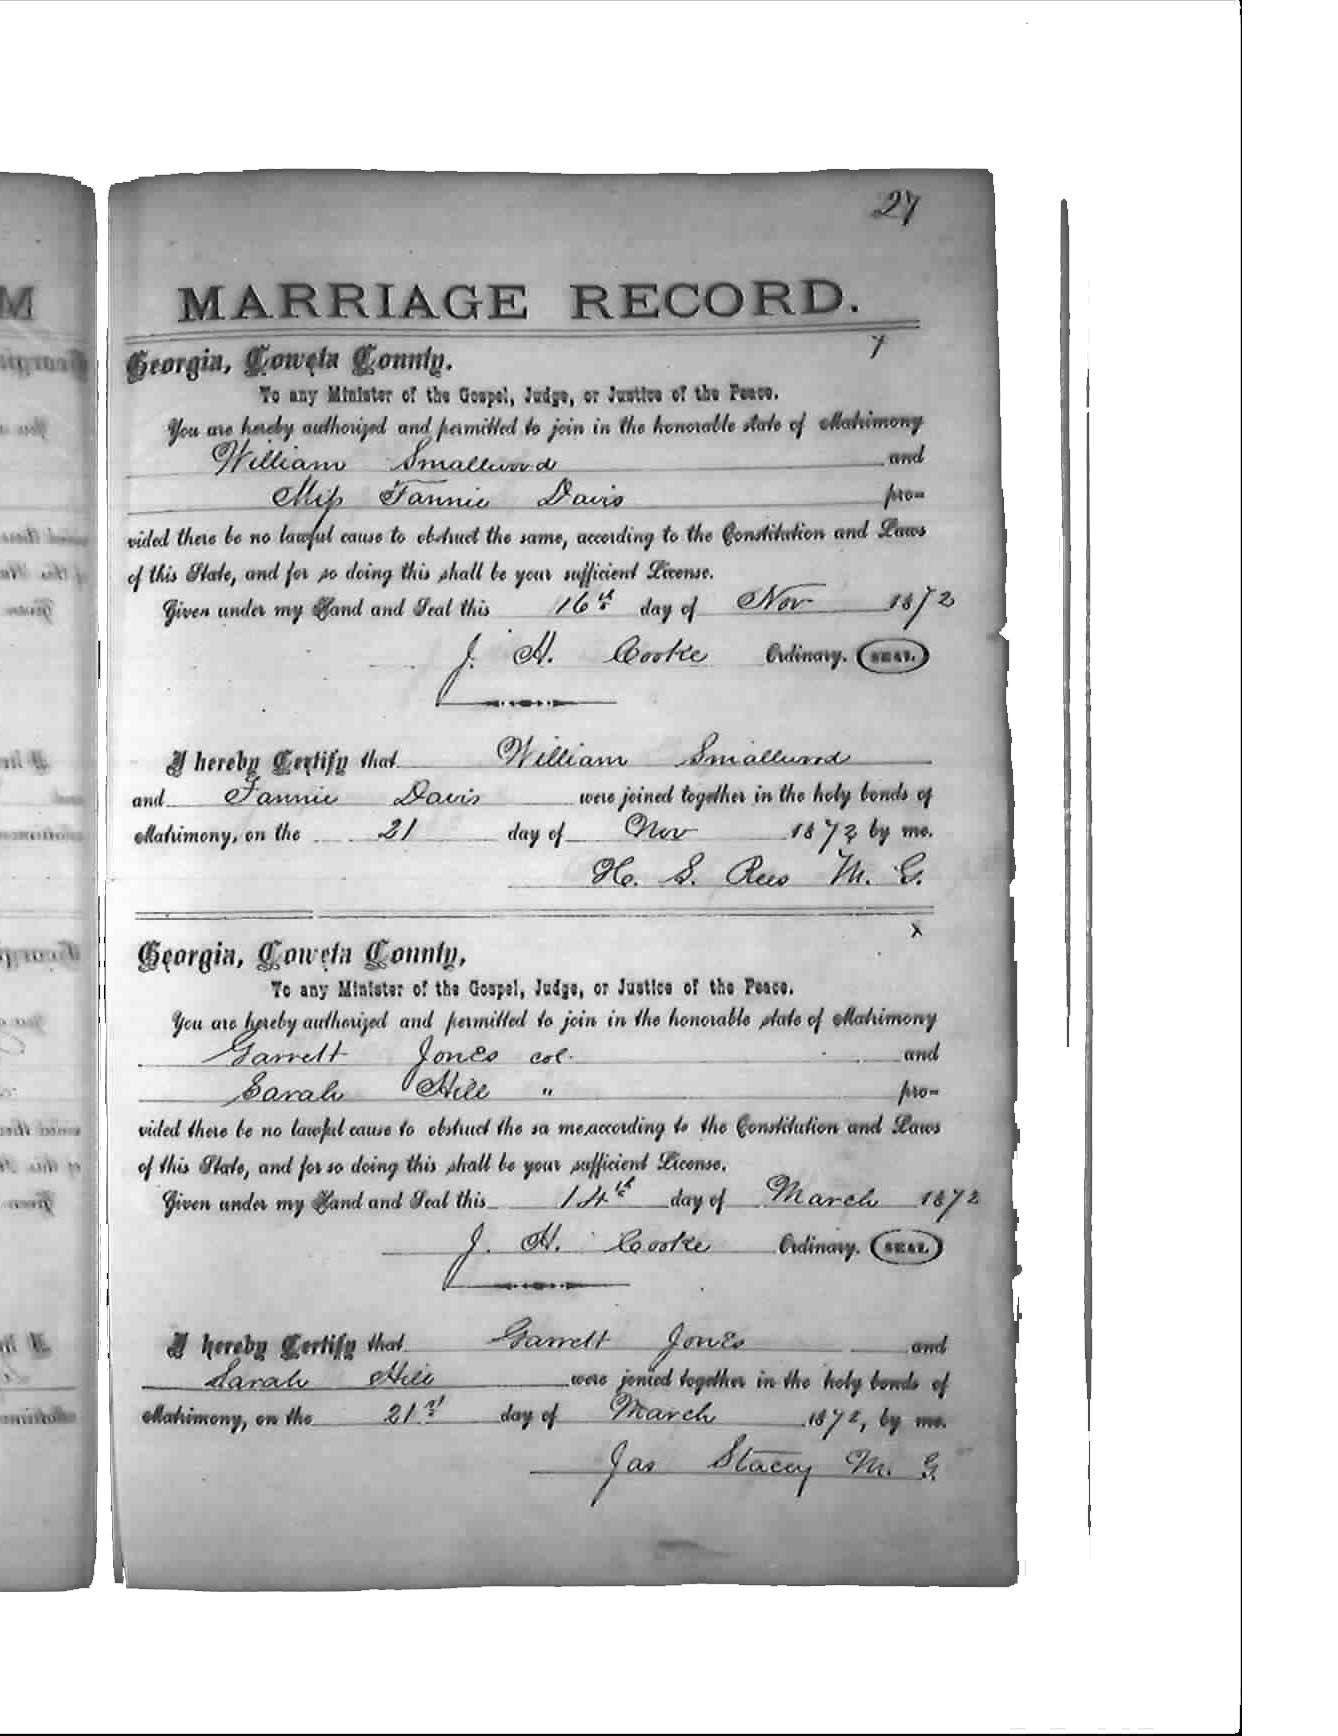 27
MARRIAGE RECORD.
Georgia, Coweta County.
To any Minister of the Gospel, Judge, or Justice of the Peace.
You are hereby authorized and permitted to join in the honorable state of Matrimony
William Smallwood and
Miss Fannie Davis pro-
vided there be no lawful cause to obstruct the same, according to the Constitution and Laws
of this State, and for so doing this shall be your sufficient License.
Given under my Hand and Seal this 16th day of Nov 1872
J. H. Cooke Ordinary. SEAL.
I hereby Certify that William Smallwood
and Fannie Davis were joined together in the holy bonds of
Matrimony, on the 21 day of Nov 1872 by me.
H. S. Rees M. G.
x
Georgia, Coweta County,
To any Minister of the Gospel, Judge, or Justice of the Peace.
You are hereby authorized and permitted to join in the honorable state of Matrimony
Garrett Jones col. and
Sarah Hill " pro-
vided there be no lawful cause to obstruct the sa me,according to the Constitution and Laws
of this State, and for so doing this shall be your sufficient License.
Given under my Hand and Seal this 14th day of March 1872
J. H. Cooke Ordinary. SEAL.
I hereby Certify that Garrett Jones and
Sarah Hill were jonied together in the holy bonds of
Matrimony, on the 21st day of March 1872, by me.
Jas Stacey M. G.